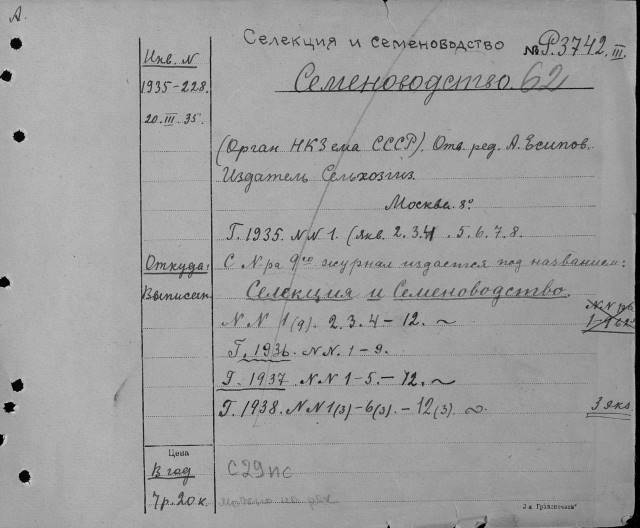 А.
Селекция и семеноводство № Р.3742.III.
Инв. N
Семеноводство. 62
1935-228.
20.III.35.
(Орган НКЗема СССР). Отв. ред. А. Есипов.
Издатель Сельхозгиз.
Москва. 8°
Г. 1935. NN 1. (янв. 2.3.4 . 5.6.7.8.
Откуда: С N-ра 9го журнал издается под названием:
Выписан Селекция и Семеноводство.
NN 1(9). 2. 3. 4 - 12. ~
Г. 1936. NN. 1-9.
Г. 1937 NN 1-5.-12. ~
Г. 1938. NN 1(3)-6(3).-12(3). ~ 3 экз
Цена
В год С29пс
7 р. 20 к.